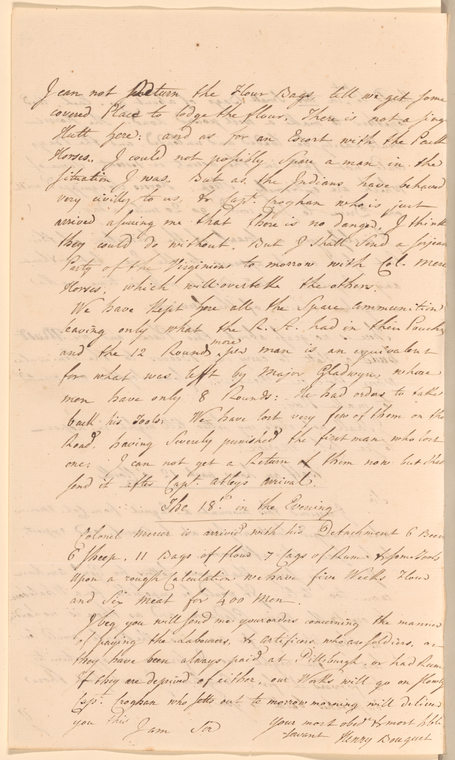 I can not Return the Flour Bags till we get some
covered Place to lodge the flour. There is not a sing
Hutt here: and as for an Escort with the Pack
Horses, I could not possibly Spare a man in the
Situation I was. But as the Indians have behaved
very civilly to us, & Capt. Croghan who is just
arrived assuring me that there is no danger, I think
they could do without. But I shall Send a Serjean
Party of the Virginians to morrow with Col. mercers
Horses, which will overtake the others.
We have Kept here all the Spare Ammunition
leaving only what the R. A. had in their Pouches
and the 12 Rounds more per man is an equivalent
for what was left by Major Gladwyn whose
men have only 8 Rounds: He had orders to take
back his Tools. We have lost very few of them on the
Road, having Severely punished the first man who lost
one; I can not get a Return of them now but shall
send it after Capt. arrival.
The 18th in the Evening
Colonel mercer is arrived with his Detachment 6 Beeves
6 Sheep. 11 Bags of flour 7 Cags of Rum & Some Tools
Upon a rough Calculation we have five Weeks Flour
and Six meat for 400 Men
I beg you will send me your orders concerning the manner
of paying the Labourers, & artificers, who are soldiers, as
they have been always paid at Pittsburgh, or had Rum
If they are deprived of either, our Works will go on slowly
Capt. Croghan who setts out to morrow morning will deliver
you this I am Sir your most obed. & most hble
Servant Henry Bouquet